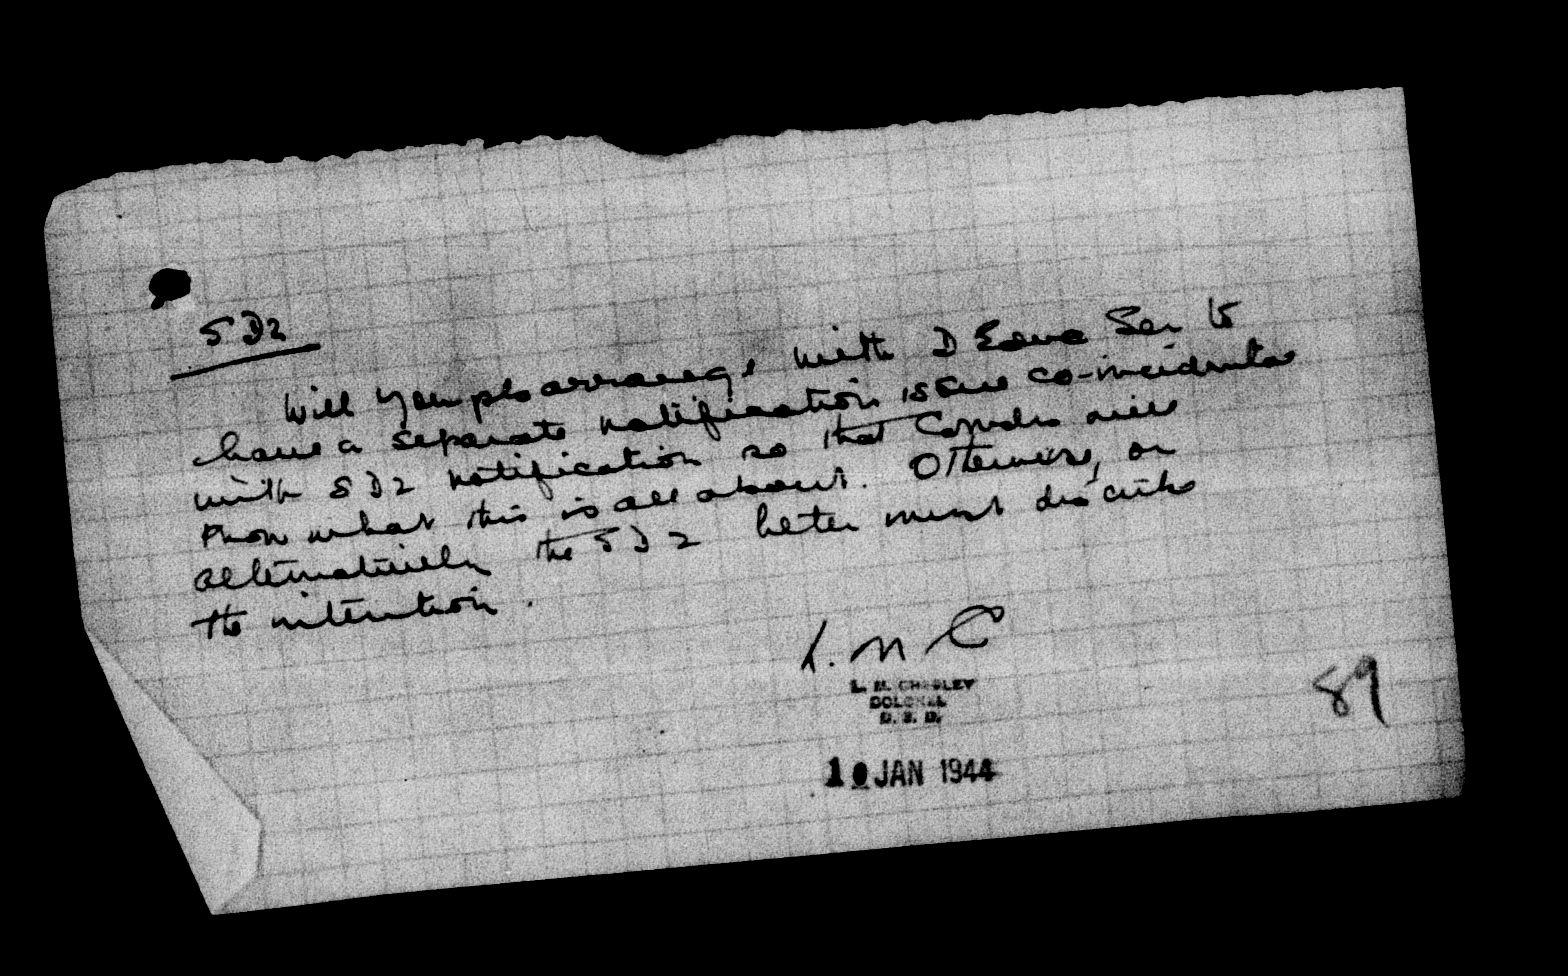 SD2
Will you pls arrange with D Educ Ser to
have a separate notification issue co-incidental
with SD2 notification so that Comds will
know what this is all about. Otherwise, or
alternatively the SD2 letter must describe
the intention.
L. M. C
L. M. CHESLEY
COLONEL
D. S. D.
10 JAN 1944
89